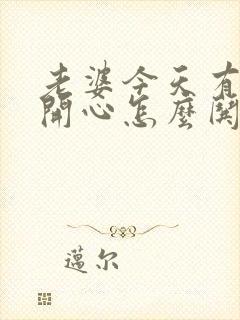 老婆今天有
開心怎麼開
邁尔